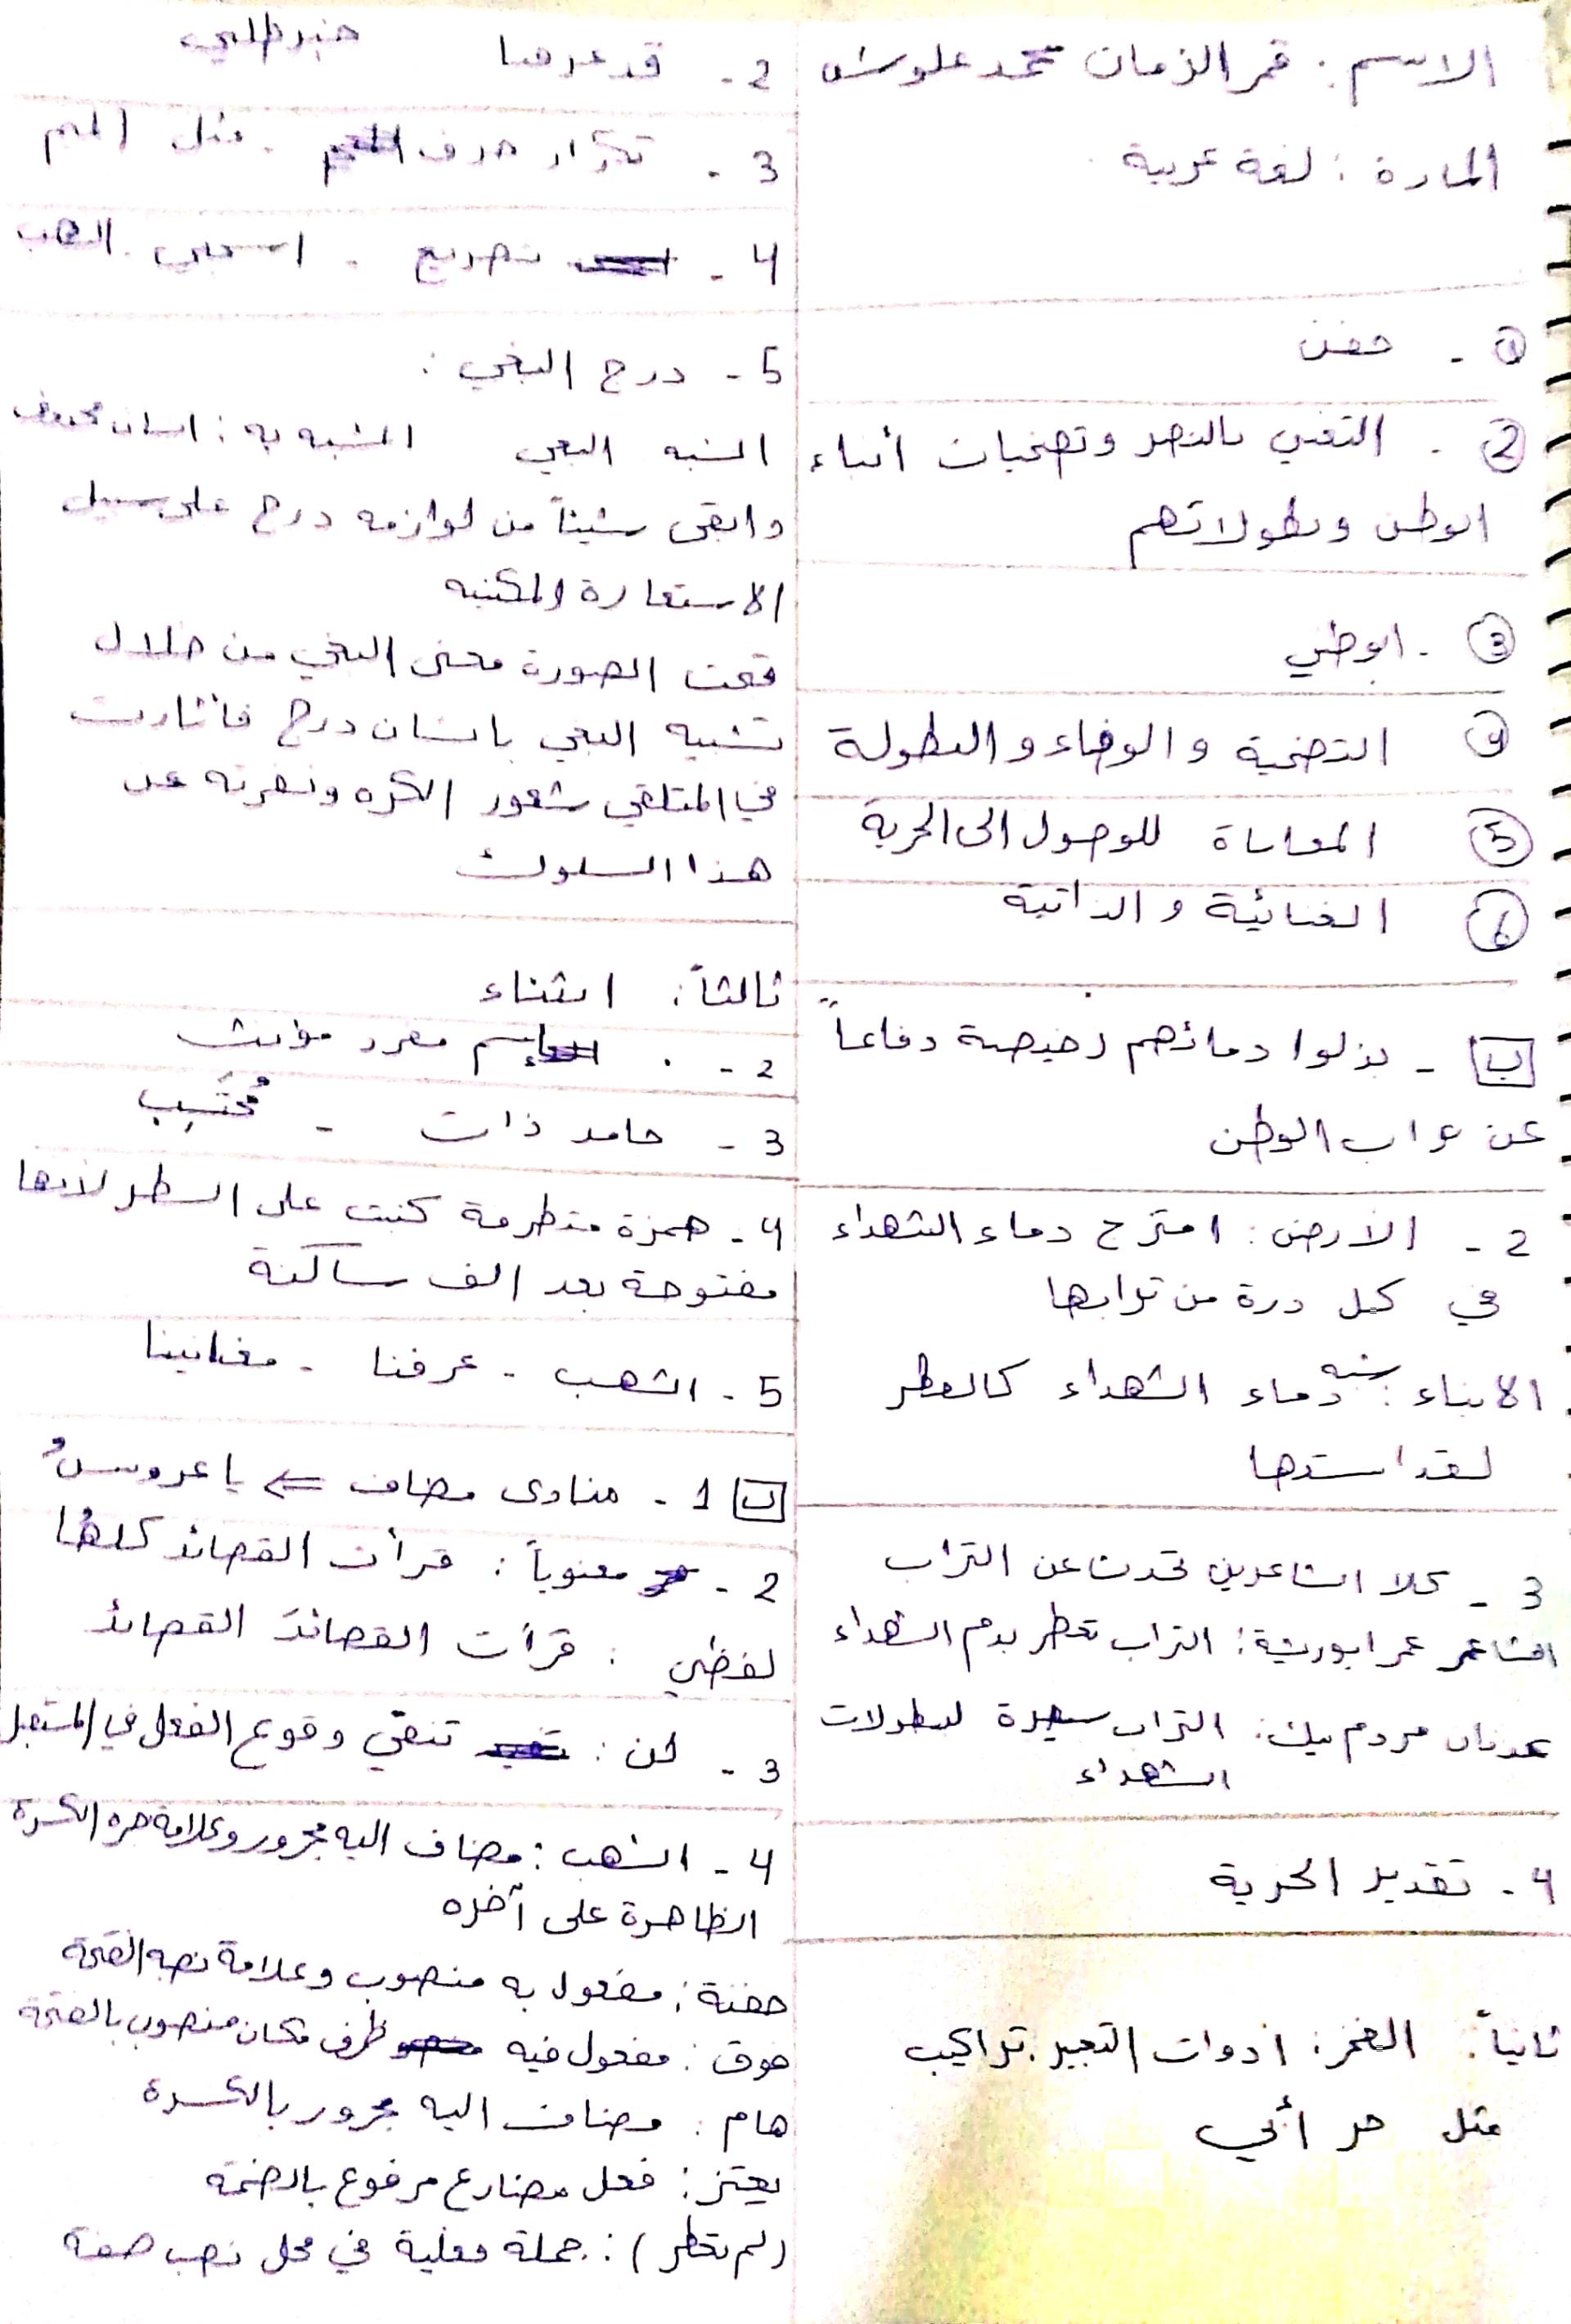 الاسم : قمر الزمان محمد علوش
المادة : لغة عربية
1 - حفن
2 . التغني بالنصر وتضحيات أبناء
الوطن وبطولاتهم
3 - ابوطني
4 التضحية والوفاء والبطولة
5 المعاناة للوصول الى الحرية
6 الغنائية والذاتية
ب - بذلوا دمائهم رخيصة دفاعاً
عن تراب الوطن
2 - الارض : امتزج دماء الشهداء
في كل ذرة من ترابها
الابناء : شبه دماء الشهداء كالعطر
لقداستها
3 - كلا الشاعرين تحدث عن التراب
الشاعر عمر ابوريشة : التراب تعطر بدم الشهداء
عدنان مردم بيك : التراب سيرة لبطولات
الشهداء
4 - تقدير الحرية
ثانياً : الفخر : ادوات التعبير : تراكيب
مثل حر أبي
2 - قد عرفنا خبر طلبي
3 - تكرار حرف . مثل الميم
4 - تصريع . اسحبي . الشهب
5 - درج البغي :
الشبه البغي المشبه به : انسان محذوف
وابقى شيئاً من لوازمه درج على سبيل
الاستعارة المكنية
قبحت الصورة معنى البغي من خلال
تشبيه البغي بانسان درج فأثارت
في المتلقي شعور الكره ونفرته عن
هذا السلوك
ثالثاً : انثناء
2 - . اسم مفرد مؤنث
3 - جامد ذات - مُحتَسِب
4 - همزة متطرفة كتبت على السطر لانها
مفتوحة بعد الف ساكنة
5 - الشهب - عرفنا - مغانينا
ب 1 - منادى مضاف ⇐ يا عروسُ
2 - معنوياً : قرأت القصائد كلها
لفظي : قرأت القصائدَ القصائد
3 - لن : تنفي وقوع الفعل في المستقبل
4 - الشهب : مضاف اليه مجرور وعلامة جره الكسرة
الظاهرة على آخره
حفنة : مفعول به منصوب وعلامة نصبه الفتحة
فوق : مفعول فيه ظرف مكان منصوب بالفتحة
هام : مضاف اليه مجرور بالكسرة
يعتز : فعل مضارع مرفوع بالضمة
(لم تعطر) : جملة فعلية في محل نصب صفة